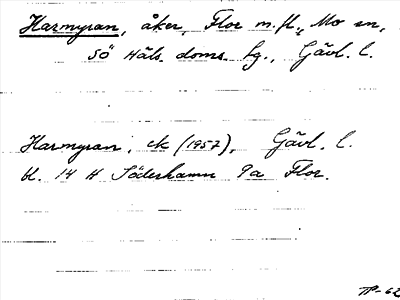 Harmyran, åker, Flor m.fl., Mo sn,
SÖ Häls. doms. bg., Gävl. l.
Harmyran, ek (1957), Gävl. l.
bl. 14 H Söderhamn 9a Flor.
TP-62